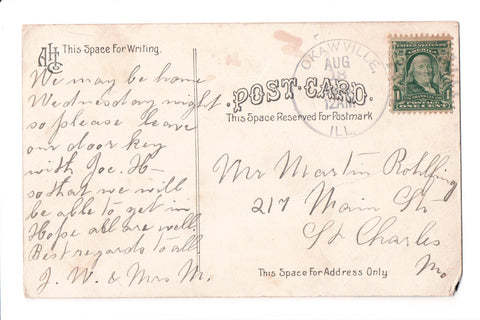 This Space For Writing.
We may be home
Wednesday night
so please leave
our door key
with Joe. H—
so that we will
be able to get in
Hope all are well.
Best regards to all
J. W. & Mrs M.
POST-CARD.
This Space Reserved For Postmark
OKAWVILLE,
AUG
8
12AM
ILL.
Mr Martin Rohlfing
217 Main St
St Charles
Mo
This Space For Address Only